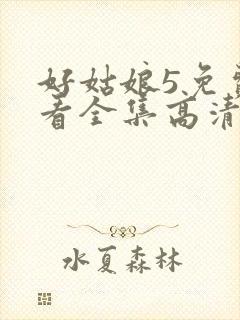 好姑娘5免费
看全集高清
水夏森林